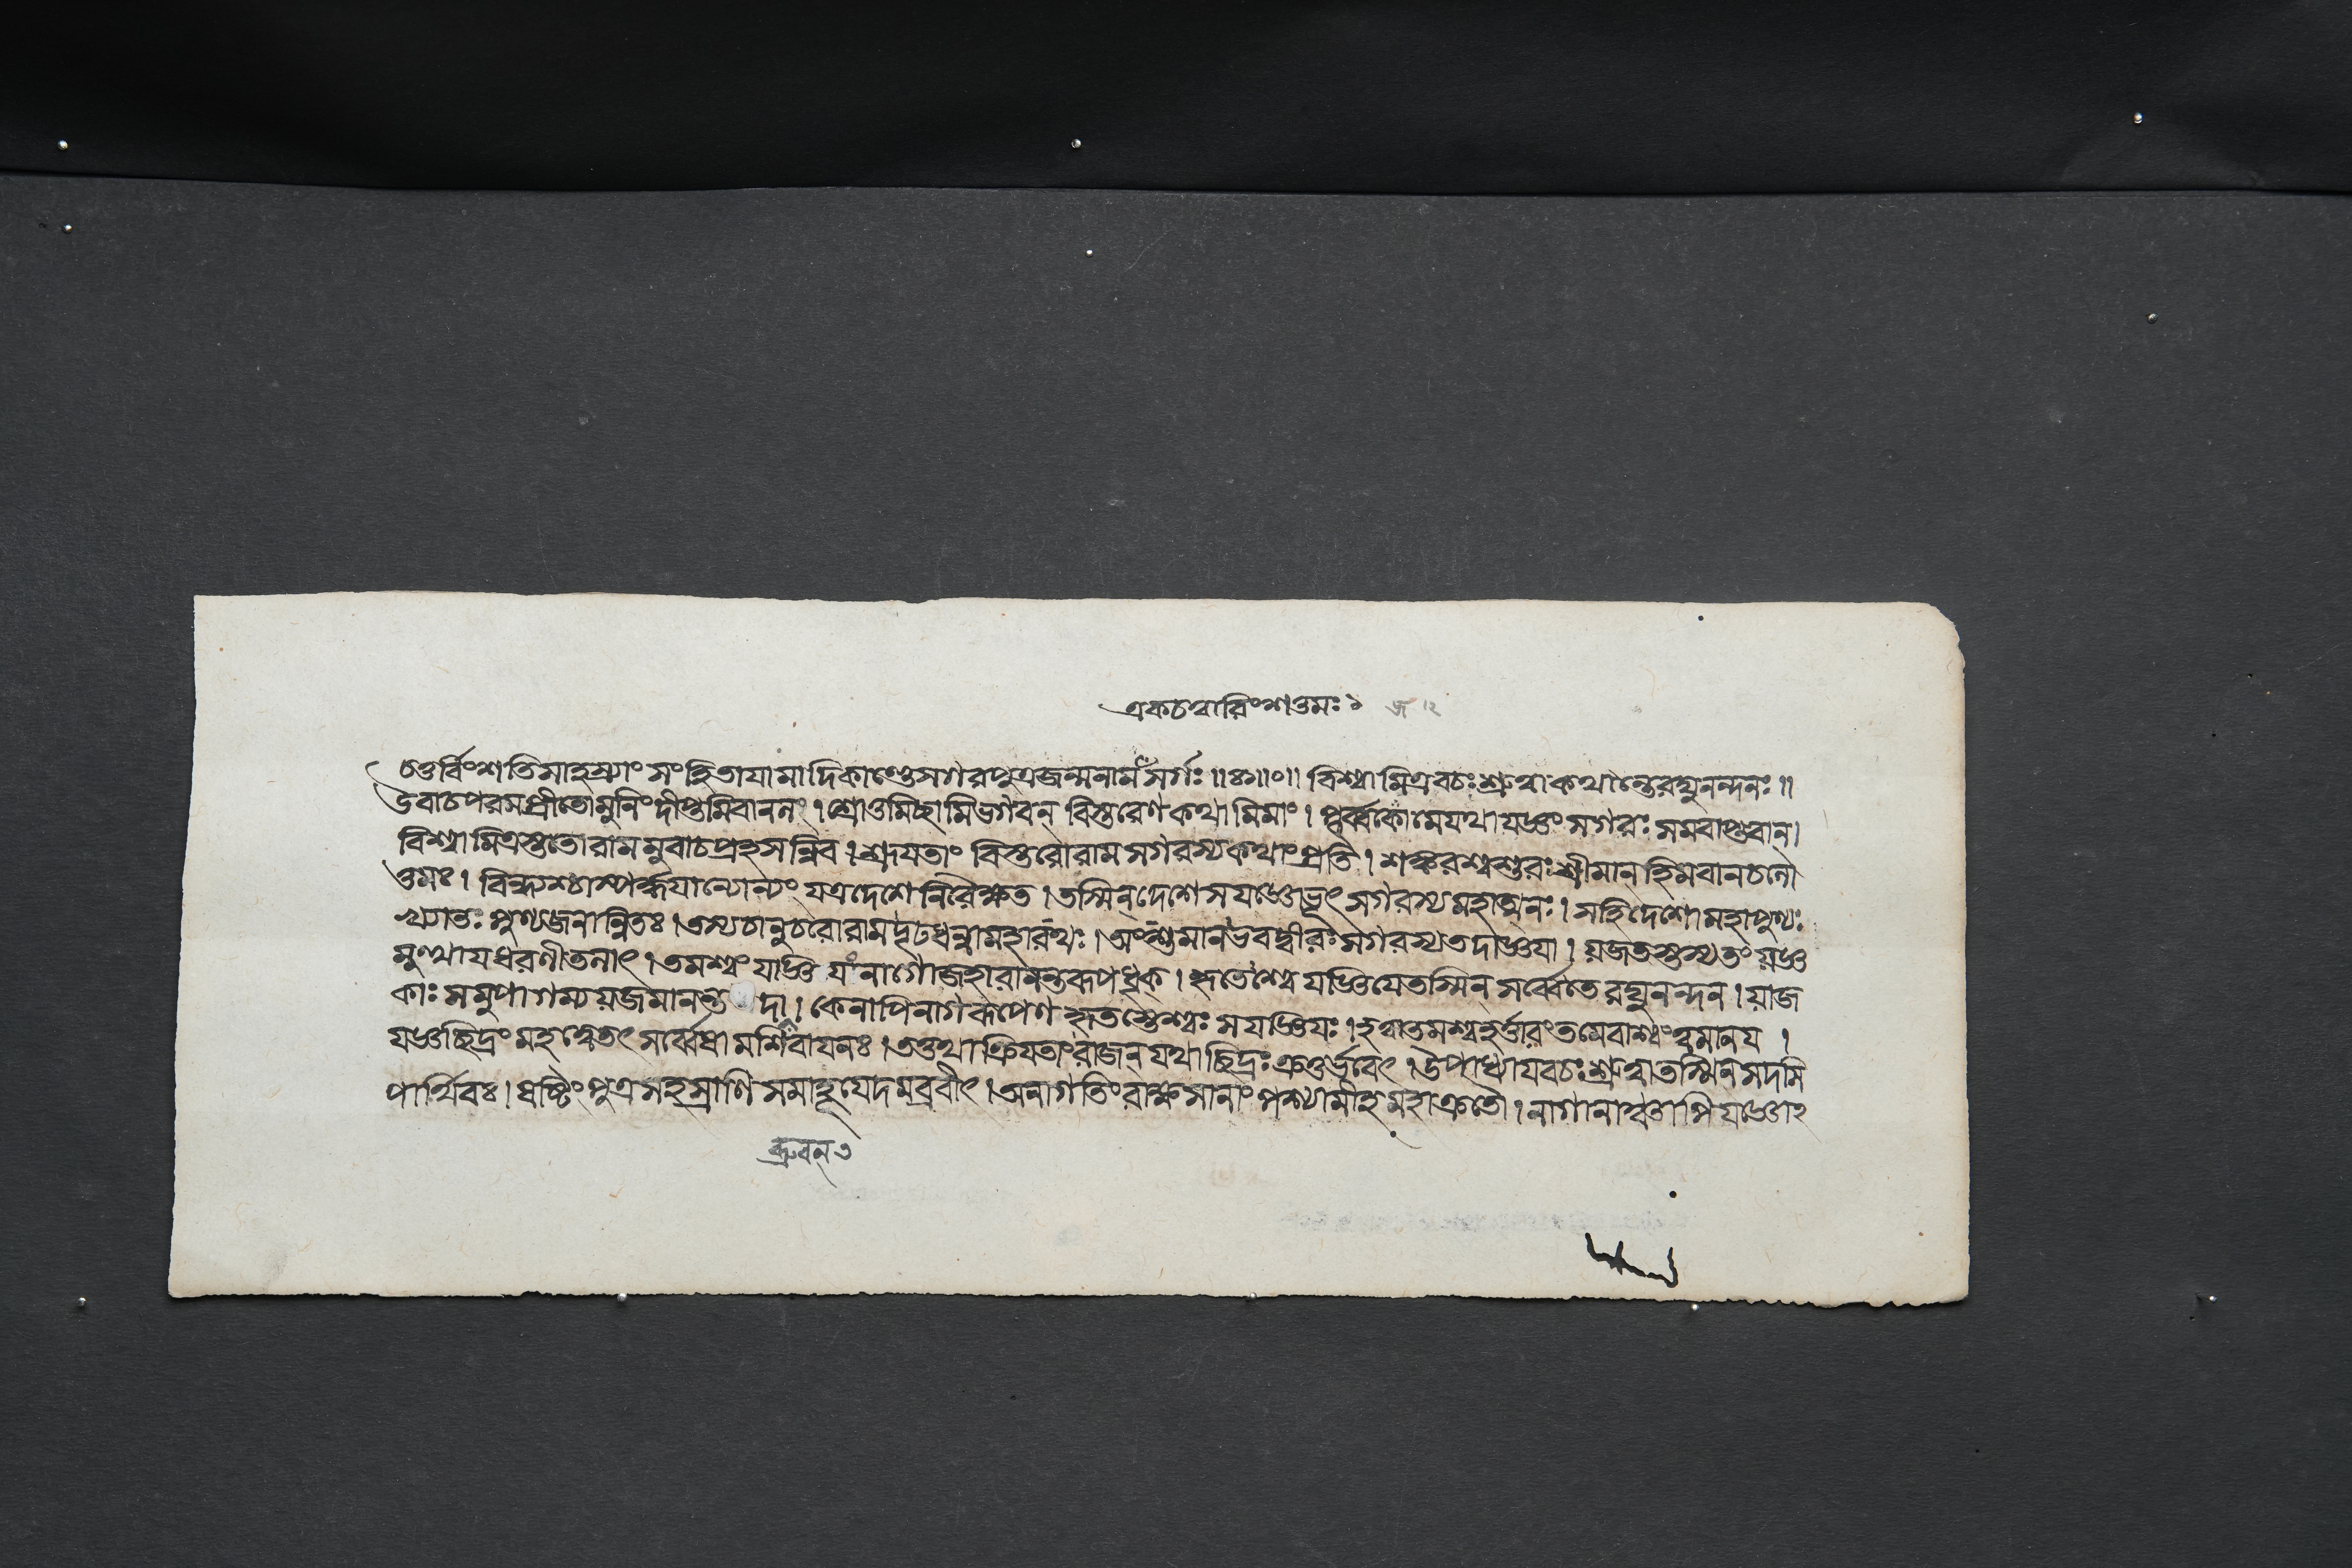 একচত্বারিংশত্তমঃ ১
চতুর্বিংশতিসাহস্র্যাং সংহিতাযামাদিকাণ্ডেসগরপুত্রজন্মনাম সর্গঃ ॥ঃ॥০॥ বিশ্বামিত্রবচঃশ্রুত্বাকথান্তেরঘুনন্দনঃ ॥
উবাচপরমপ্রীতোমুনিংদীপ্তমিবাননং । শ্রোতুমিচ্ছামিভগবন্ বিস্তরেণকথামিমাং । পূর্ব্বকোমেযথাযজ্ঞং সগরঃ সমবাপ্তবান্ ।
বিশ্বামিত্রস্ততোরামমুবাচপ্রহসন্নিব । শ্রূযতাং বিস্তরোরামসগরস্যকথাংপ্রতি । শঙ্করশ্বশুরঃশ্রীমান্ হিমবানচলো
ত্তমঃ । বিন্ধ্যশ্চাস্পর্দ্ধযান্যোন্যং যত্রদেশেনিরৈক্ষত । তস্মিন্দেশেসযজ্ঞোভূৎ সগরস্যমহাত্মনঃ । সহিদেশোমহাপুণ্যঃ
খ্যাতঃ পুণ্যজনান্বিতঃ । তস্যচানুচরোরামদৃঢধন্বামহারথঃ । অংশুমানভবদ্বীরঃসগরস্যতদাজ্ঞযা । যজতস্তস্যতং যজ্ঞ
মুত্থাযধরণীতলাৎ । তমশ্বং যাজ্ঞিযংনাগোজহারানন্তরূপধৃক্ । হৃতেশ্বেযজ্ঞিযেতস্মিন্ সর্ব্বেতেরঘুনন্দন । যাজ
কাঃ সমুপাগম্যযজমানন্ত দা । কেনাপিনাগরূপেণ হৃতস্তেশ্বঃ সযজ্ঞিযঃ । হত্বাতমশ্বহর্ত্তারংতমেবাশ্বংত্বমানয ।
যজ্ঞচ্ছিদ্রং মহদ্ধ্যেতৎ সর্ব্বেষামশিবাযনঃ । তত্তথাক্রিযতাংরাজন্ যথাচ্ছিদ্রঃ ক্রতুর্ভবেৎ । উপাধ্যাযবচঃশ্রুত্বাতস্মিন্সদসি
পার্থিবঃ । ষষ্টিং পুত্রসহস্রাণি সমাহূযেদমব্রবীৎ । অনাগতিংরাক্ষসানাং পশ্যামীহমহাক্রতৌ । নাগানাম্বাপিযজ্ঞোঽ
ব্রুবন্ ৩